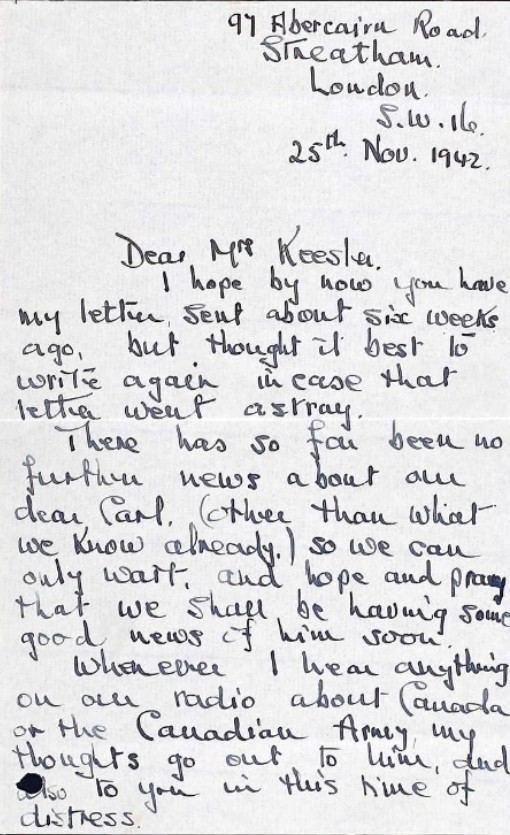 97 Abercairn Road.
Streatham.
London.
S.W.16.
25th. Nov. 1942.
Dear Mrs Keesler.
I hope by now you have
my letter, sent about six weeks
ago, but thought it best to
write again in case that
letter went astray.
There has so far been no
further news about our
dear Carl. (other than what
we know already.) so we can
only wait, and hope and pray
that we shall be having some
good news of him soon.
Whenever I hear anything
on our radio about Canada
or the Canadian Army my
thoughts go out to him, and
also to you in this time of
distress.